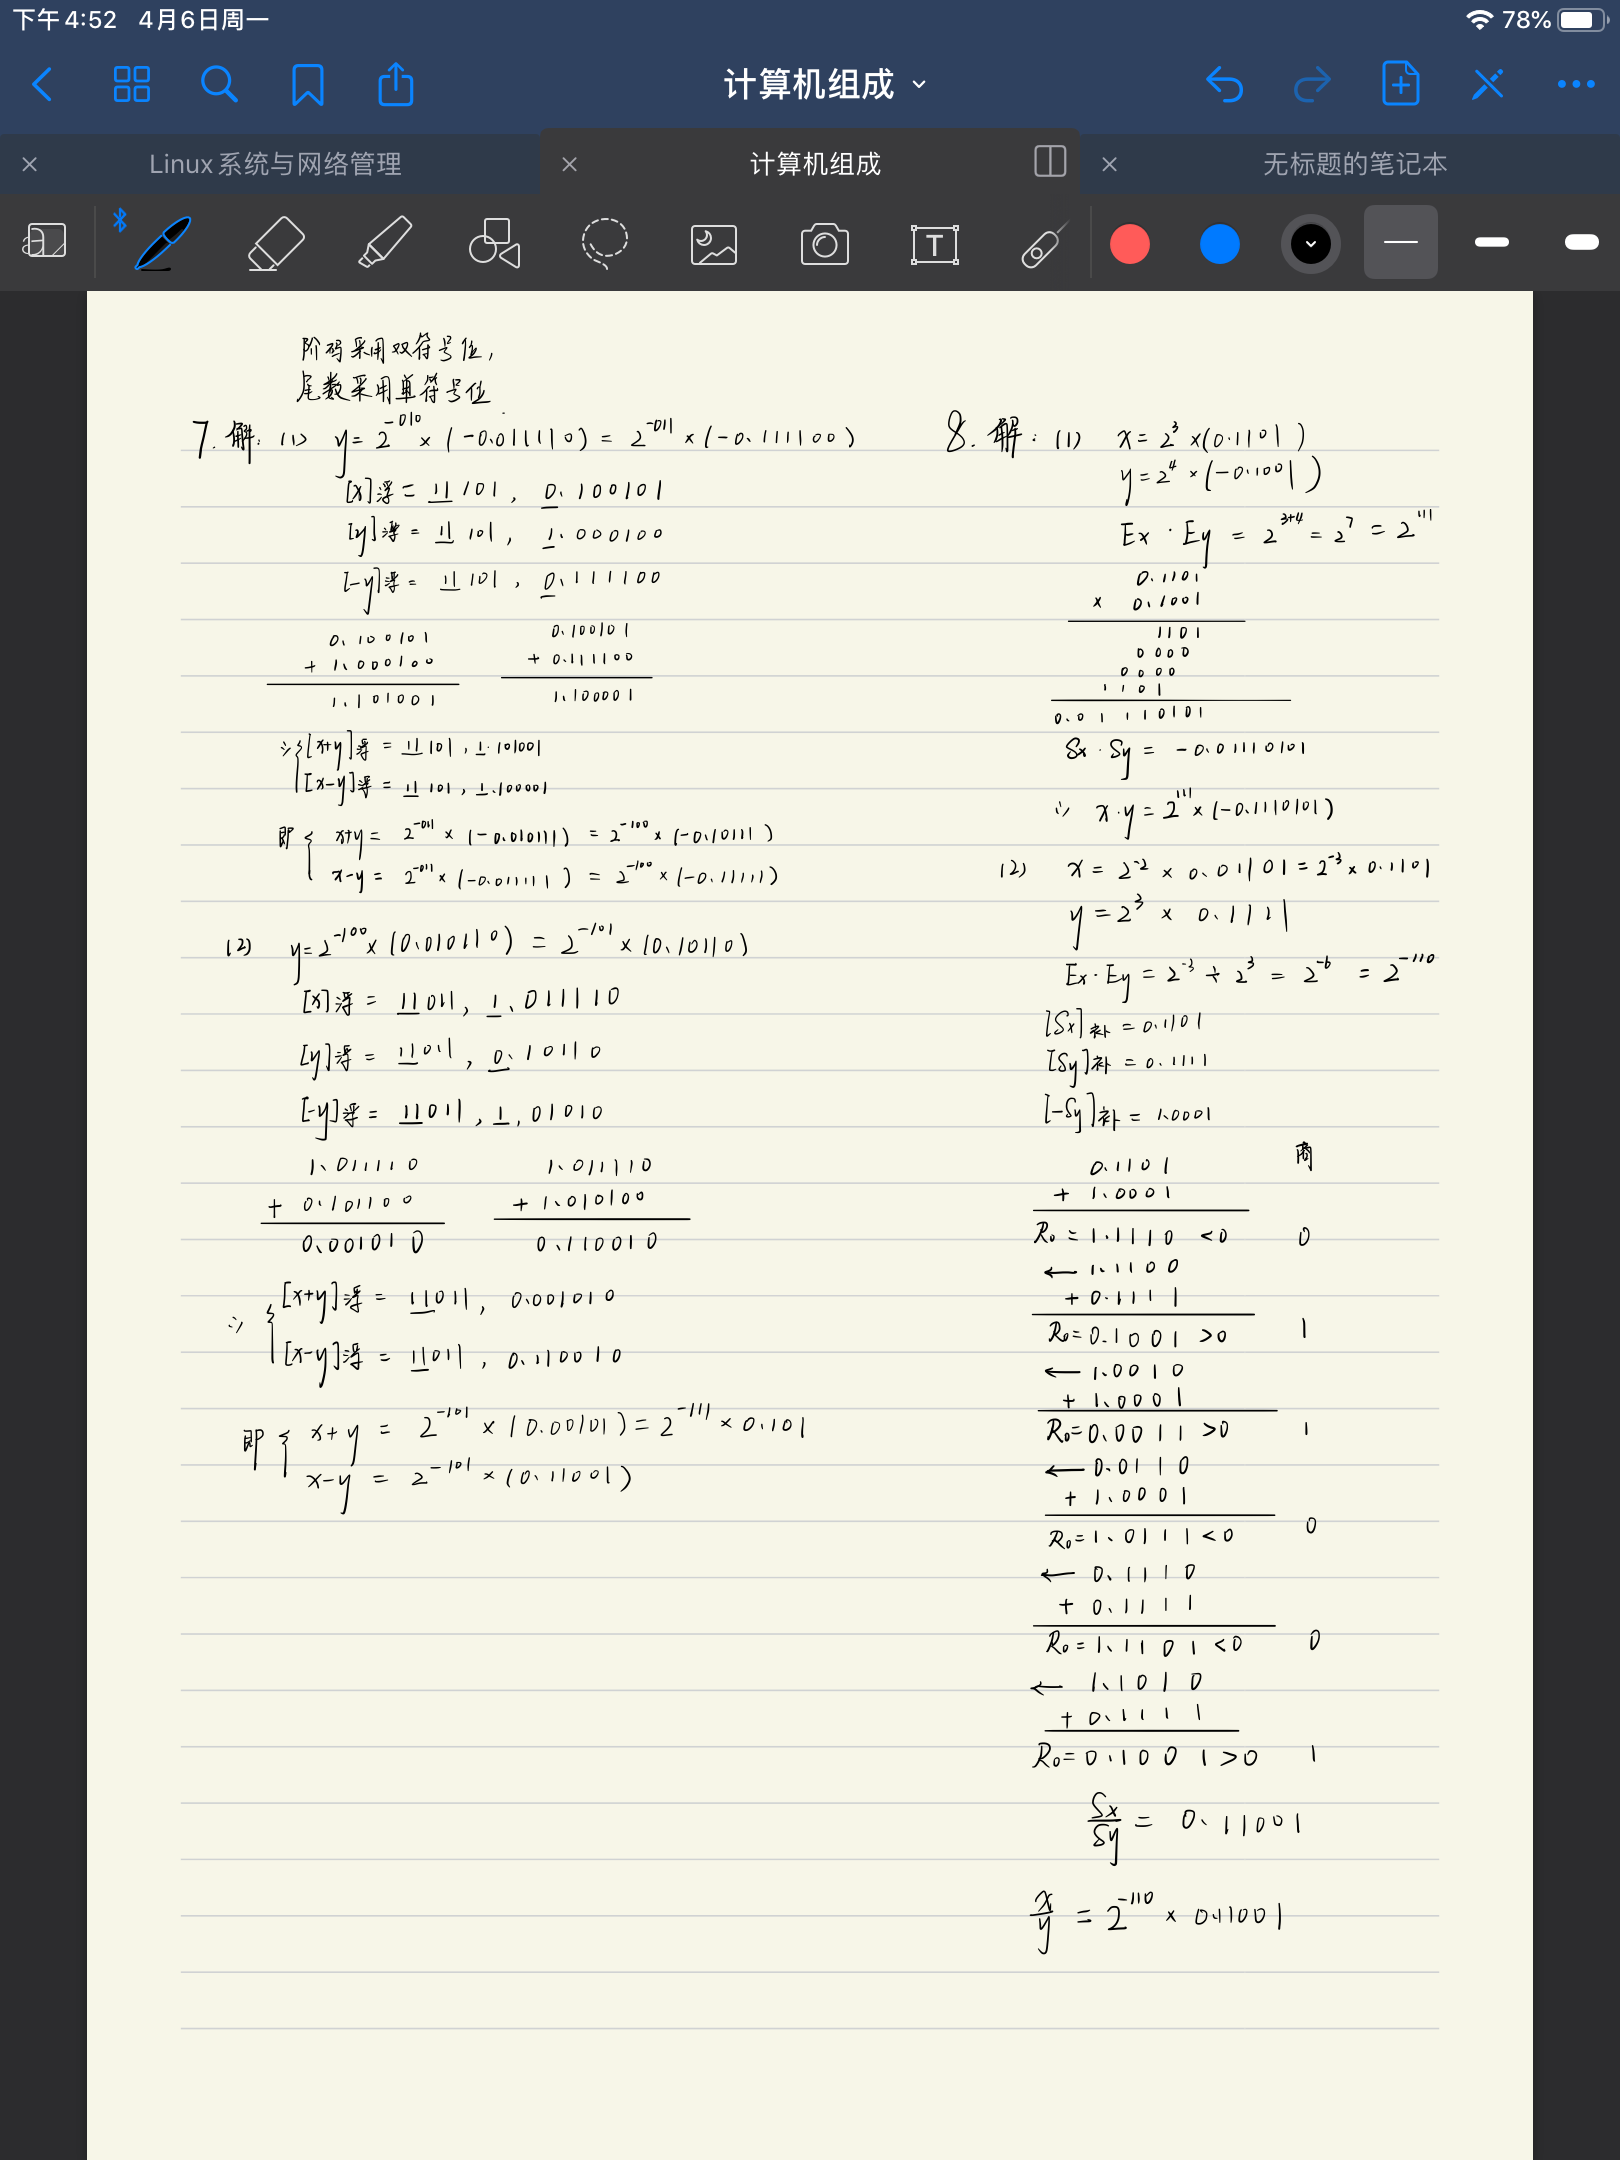 下午4:52 4月6日周一
78%
计算机组成
Linux系统与网络管理
计算机组成
无标题的笔记本
T
阶码采用双符号位，
尾数采用单符号位
7. 解: (1) y = 2^-010 × (-0.011110) = 2^-011 × (-0.111100)
[x]浮 = 11 101, 0.100101
[y]浮 = 11 101, 1.000100
[-y]浮 = 11 101, 0.111100
0.100101
+ 1.000100
1.101001
0.100101
+ 0.111100
1.100001
∴ { [x+y]浮 = 11 101, 1.101001
[x-y]浮 = 11 101, 1.100001
即 { x+y = 2^-011 × (-0.010111) = 2^-100 × (-0.10111)
x-y = 2^-011 × (-0.011111) = 2^-100 × (-0.11111)
(2) y = 2^-100 × (0.010110) = 2^-101 × (0.10110)
[x]浮 = 11011, 1.011110
[y]浮 = 11011, 0.10110
[-y]浮 = 11011, 1.01010
1.011110
+ 0.101100
0.001010
1.011110
+ 1.010100
0.110010
∴ { [x+y]浮 = 11011, 0.001010
[x-y]浮 = 11011, 0.110010
即 { x+y = 2^-101 × (0.00101) = 2^-111 × 0.101
x-y = 2^-101 × (0.11001)
8. 解: (1) x = 2^3 × (0.1101)
y = 2^4 × (-0.1001)
Ex · Ey = 2^3+4 = 2^7 = 2^111
0.1101
× 0.1001
1101
0000
0000
1101
0.01110101
Sx · Sy = -0.01110101
∴ x·y = 2^111 × (-0.1110101)
(2) x = 2^-2 × 0.01101 = 2^-3 × 0.1101
y = 2^3 × 0.1111
Ex · Ey = 2^-3 ÷ 2^3 = 2^-6 = 2^-110
[Sx]补 = 0.1101
[Sy]补 = 0.1111
[-Sy]补 = 1.0001
商
0.1101
+ 1.0001
R₀ = 1.1110 <0 0
← 1.1100
+ 0.1111
R₀ = 0.1001 >0 1
← 1.0010
+ 1.0001
R₀ = 0.0011 >0 1
← 0.0110
+ 1.0001
R₀ = 1.0111 <0 0
← 0.1110
+ 0.1111
R₀ = 1.1101 <0 0
← 1.1010
+ 0.1111
R₀ = 0.1001 >0 1
Sx/Sy = 0.11001
x/y = 2^-110 × 0.11001